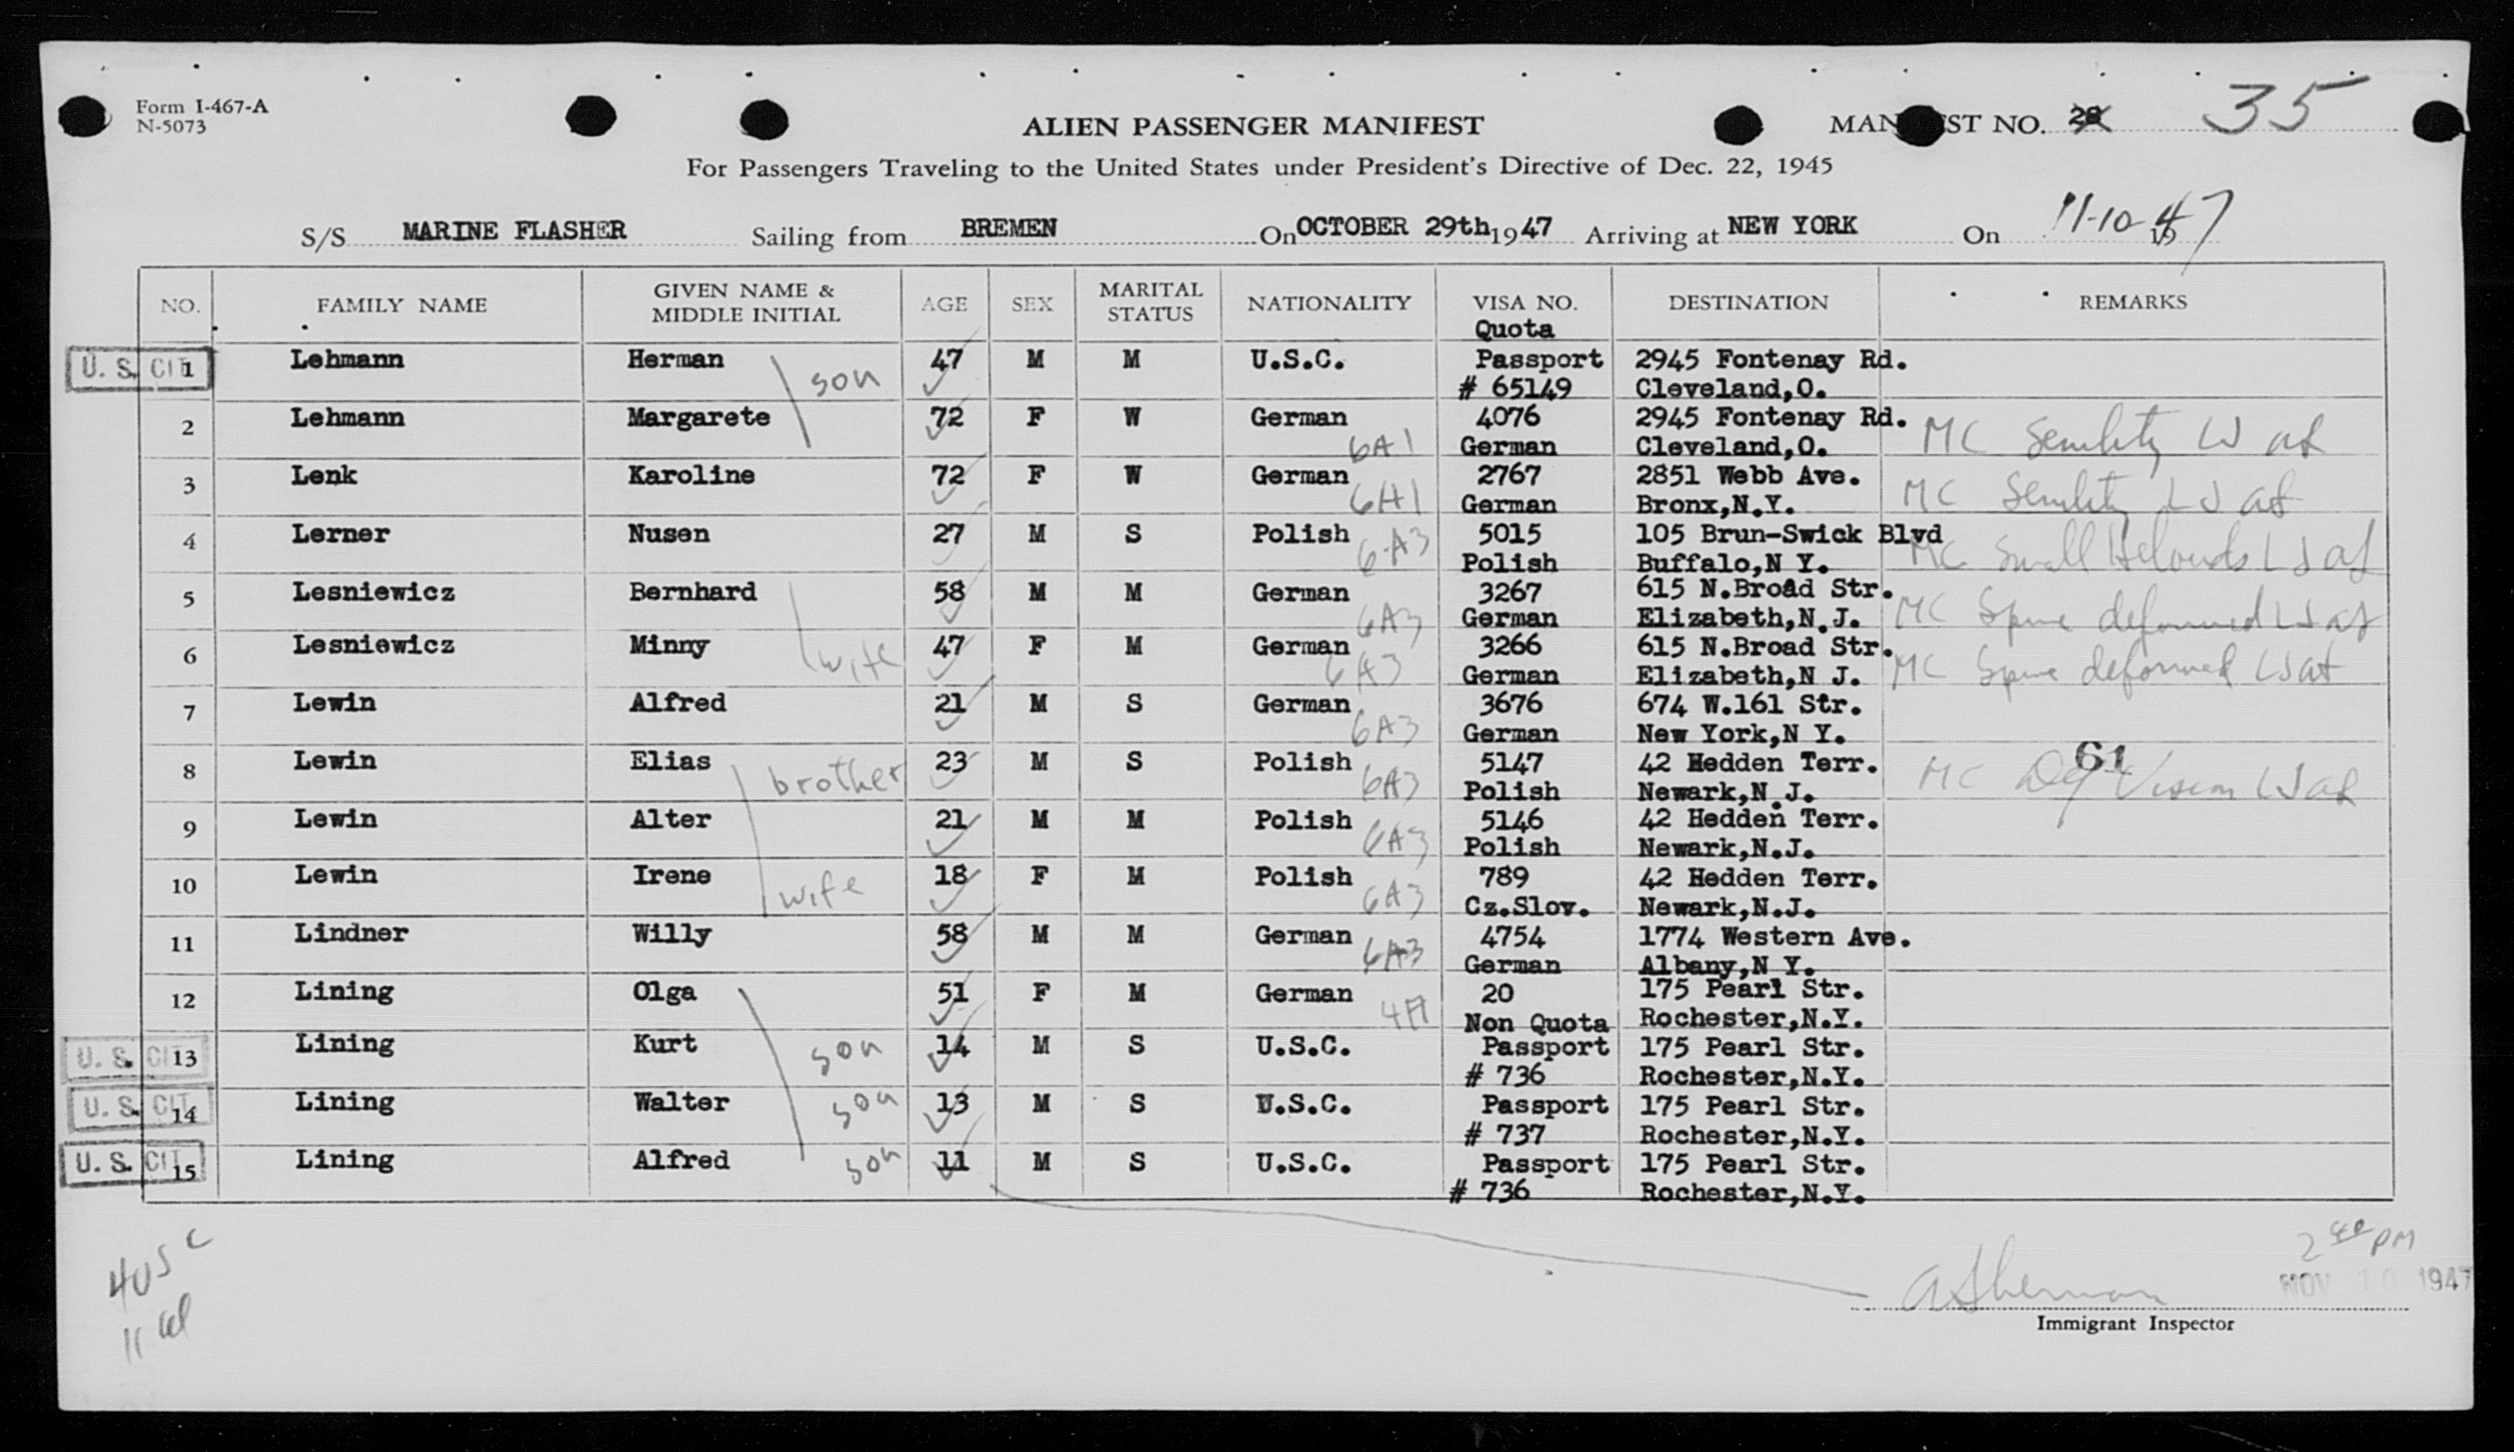 Form I-467-A
N-5073
ALIEN PASSENGER MANIFEST
MAN ST NO. 28 35
For Passengers Traveling to the United States under President's Directive of Dec. 22, 1945
S/S MARINE FLASHER Sailing from BREMEN On OCTOBER 29th 1947 Arriving at NEW YORK On 11-10-47
NO. FAMILY NAME GIVEN NAME & MIDDLE INITIAL AGE SEX MARITAL STATUS NATIONALITY VISA NO. DESTINATION REMARKS
Quota
U. S. CIT 1 Lehmann Herman son 47 M M U.S.C. Passport 2945 Fontenay Rd.
# 65149 Cleveland,O.
2 Lehmann Margarete 72 F W German 4076 2945 Fontenay Rd.
6A1 German Cleveland,O. MC Senility
3 Lenk Karoline 72 F W German 2767 2851 Webb Ave.
6A1 German Bronx,N.Y. MC Senility
4 Lerner Nusen 27 M S Polish 5015 105 Brun-Swick Blvd
6A3 Polish Buffalo,N Y. MC Small
5 Lesniewicz Bernhard 58 M M German 3267 615 N.Broad Str.
6A3 German Elizabeth,N.J. MC Spine deformed
6 Lesniewicz Minny wife 47 F M German 3266 615 N.Broad Str.
6A3 German Elizabeth,N J. MC Spine deformed
7 Lewin Alfred 21 M S German 3676 674 W.161 Str.
6A3 German New York,N Y.
8 Lewin Elias brother 23 M S Polish 5147 42 Hedden Terr. 61
6A3 Polish Newark,N.J. MC Def Vision
9 Lewin Alter 21 M M Polish 5146 42 Hedden Terr.
6A3 Polish Newark,N.J.
10 Lewin Irene wife 18 F M Polish 789 42 Hedden Terr.
6A3 Cz.Slov. Newark,N.J.
11 Lindner Willy 58 M M German 4754 1774 Western Ave.
6A3 German Albany,N Y.
12 Lining Olga 51 F M German 20 175 Pearl Str.
4A Non Quota Rochester,N.Y.
U. S. CIT 13 Lining Kurt son 14 M S U.S.C. Passport 175 Pearl Str.
# 736 Rochester,N.Y.
U. S. CIT 14 Lining Walter son 13 M S U.S.C. Passport 175 Pearl Str.
# 737 Rochester,N.Y.
U. S. CIT 15 Lining Alfred son 11 M S U.S.C. Passport 175 Pearl Str.
# 736 Rochester,N.Y.
4 USC
11
2 40 PM
A Sherman NOV 10 1947
Immigrant Inspector